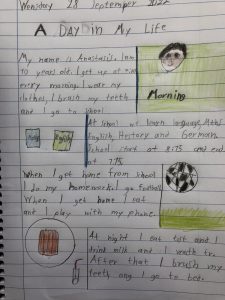 Wonsday 28 September 2022
A Day in My Life
My name is Anastasia. I am
10 years old. I get up at
every morning. I wear my
clothes, I brush my teeth
and I go to school.
Morning
At school we learn language, Maths
English, History and German.
School start at 8:15 and end
at
English
When I get home from school
I do my homework. I go football
When I get home I eat
and I play with my phone.
At night I eat tost and I
drink milk and I
After that I brush my
teeth and I go to bed.